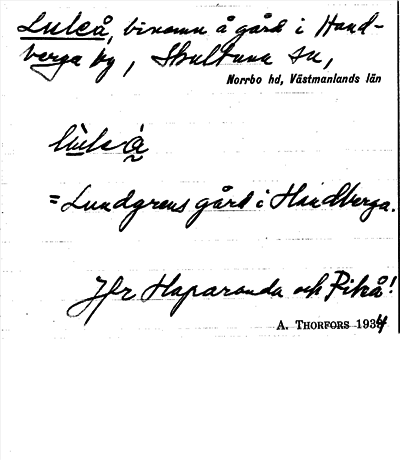 Luleå, binamn å gård i Hand-
berga by, Skultuna sn,
Norrbo hd, Västmanlands län
lùleå̀
=Lundgrens gård i Handberga.
Jfr Haparanda och Piteå!
A. THORFORS 1934